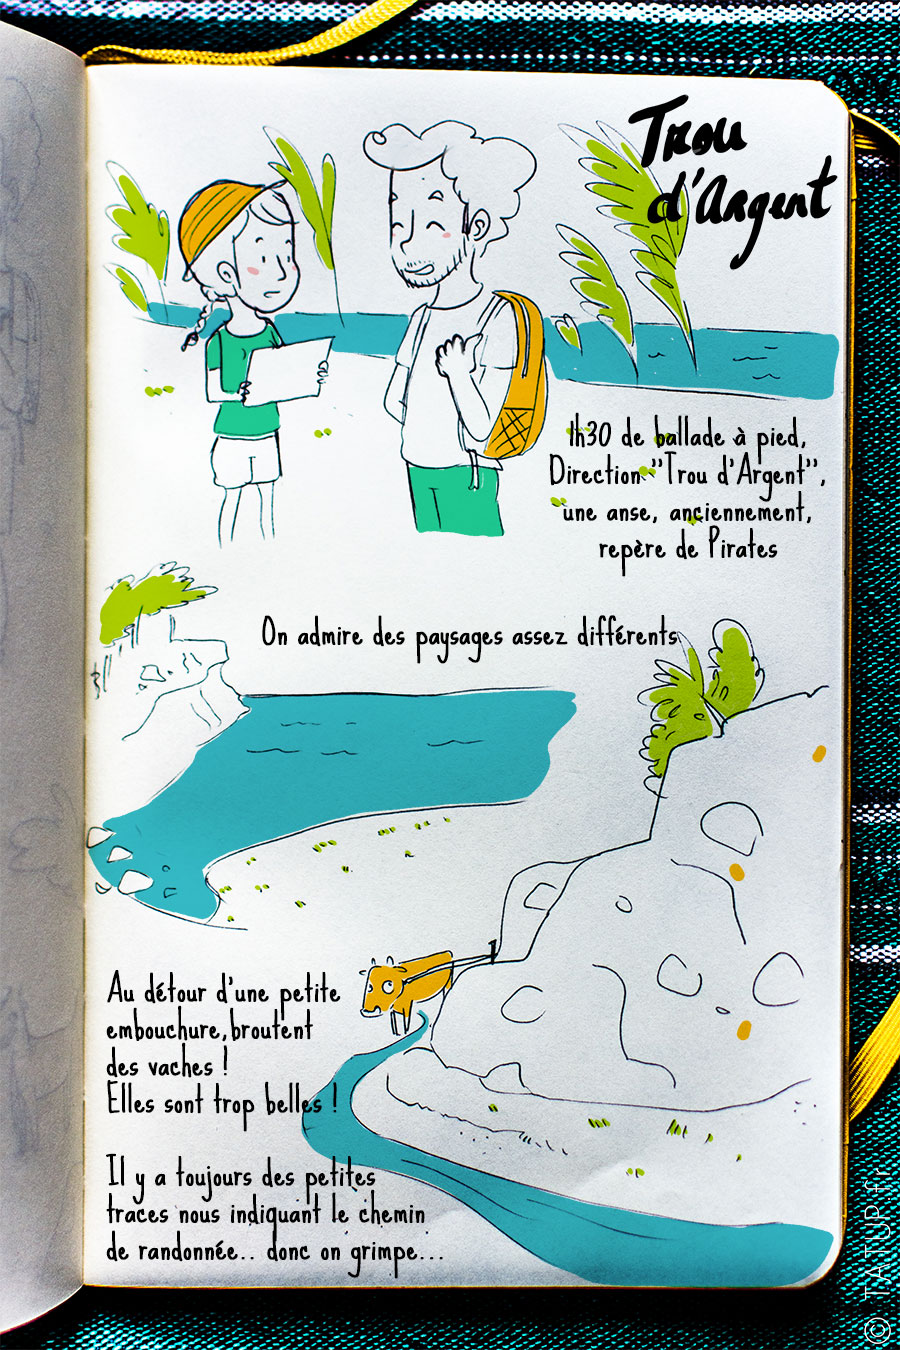 Trou
d'Argent
1h30 de ballade à pied,
Direction "Trou d'Argent",
une anse, anciennement,
repère de Pirates
On admire des paysages assez différents
Au détour d'une petite
embouchure, broutent
des vaches !
Elles sont trop belles !
Il y a toujours des petites
traces nous indiquant le chemin
de randonnée.. donc on grimpe...
© TATUP.fr